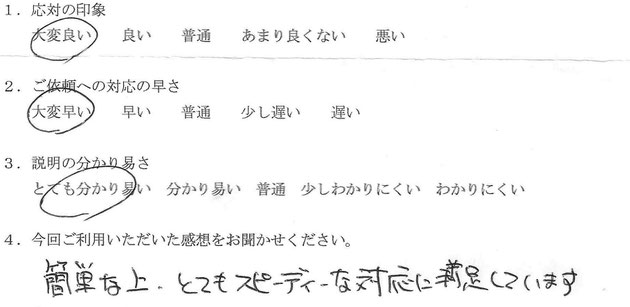 １．応対の印象
大変良い　良い　普通　あまり良くない　悪い
２．ご依頼への対応の早さ
大変早い　早い　普通　少し遅い　遅い
３．説明の分かり易さ
とても分かり易い　分かり易い　普通　少しわかりにくい　わかりにくい
４．今回ご利用いただいた感想をお聞かせください。
簡単な上、とてもスピーディーな対応に満足しています